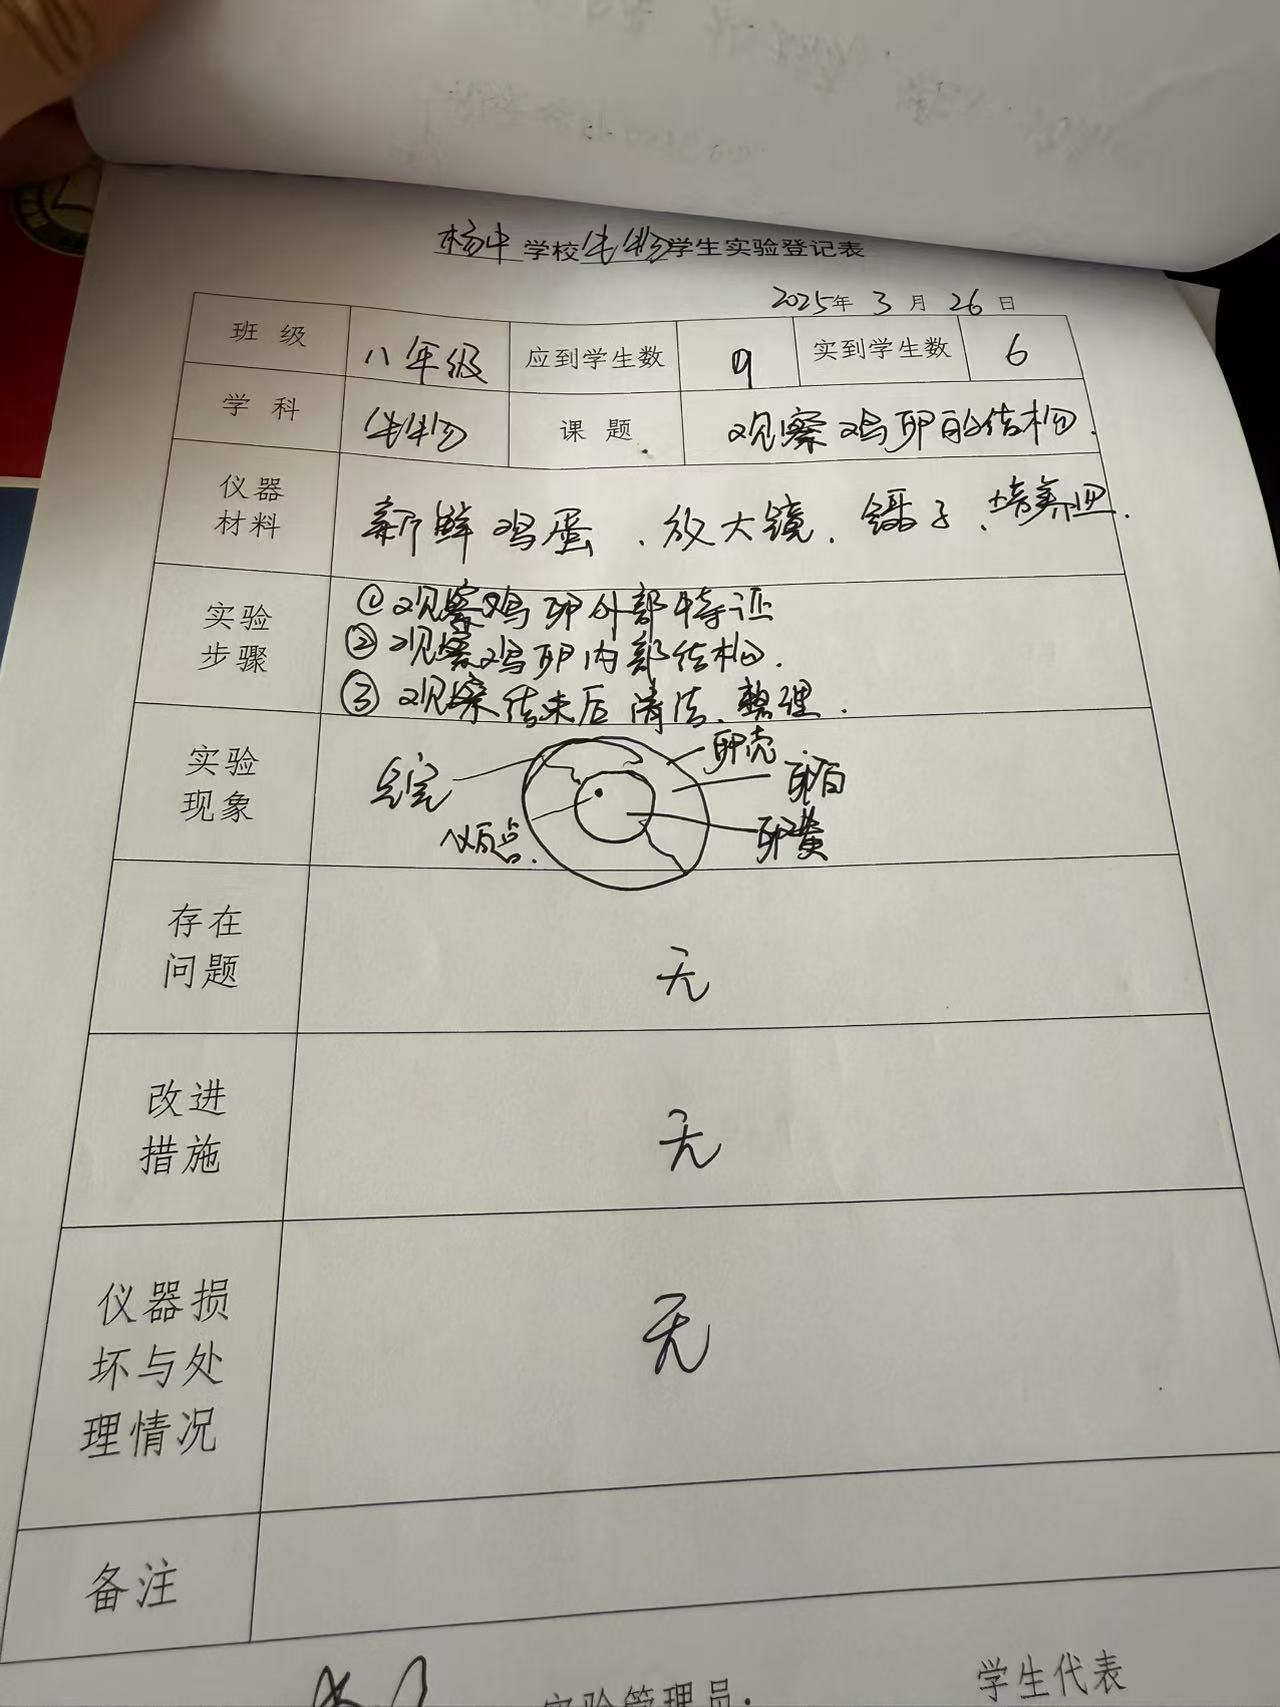 杨中学校生物学生实验登记表
2025年 3月 26日
班级 八年级 应到学生数 9 实到学生数 6
学科 生物 课题 观察鸡卵的结构.
仪器材料 新鲜鸡蛋、放大镜、镊子、培养皿.
实验步骤 ①观察鸡卵外部特征
②观察鸡卵内部结构.
③观察结束后清洁、整理.
实验现象 气室 卵壳
卵白
胚盘. 卵黄
存在问题 无
改进措施 无
仪器损坏与处理情况 无
备注
实验管理员: 学生代表